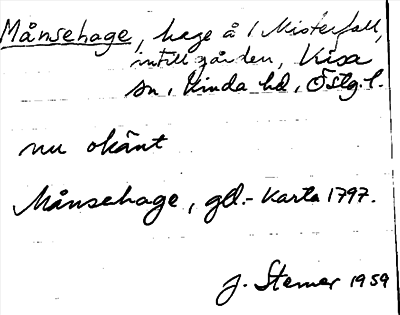 Månsehage, hage å 1 Misterfall,
intill gården, Kisa
sn, Kinda hd, Östg. l.
nu okänt
Månsehage, gll.-karta 1797.
J. Sterner 1959